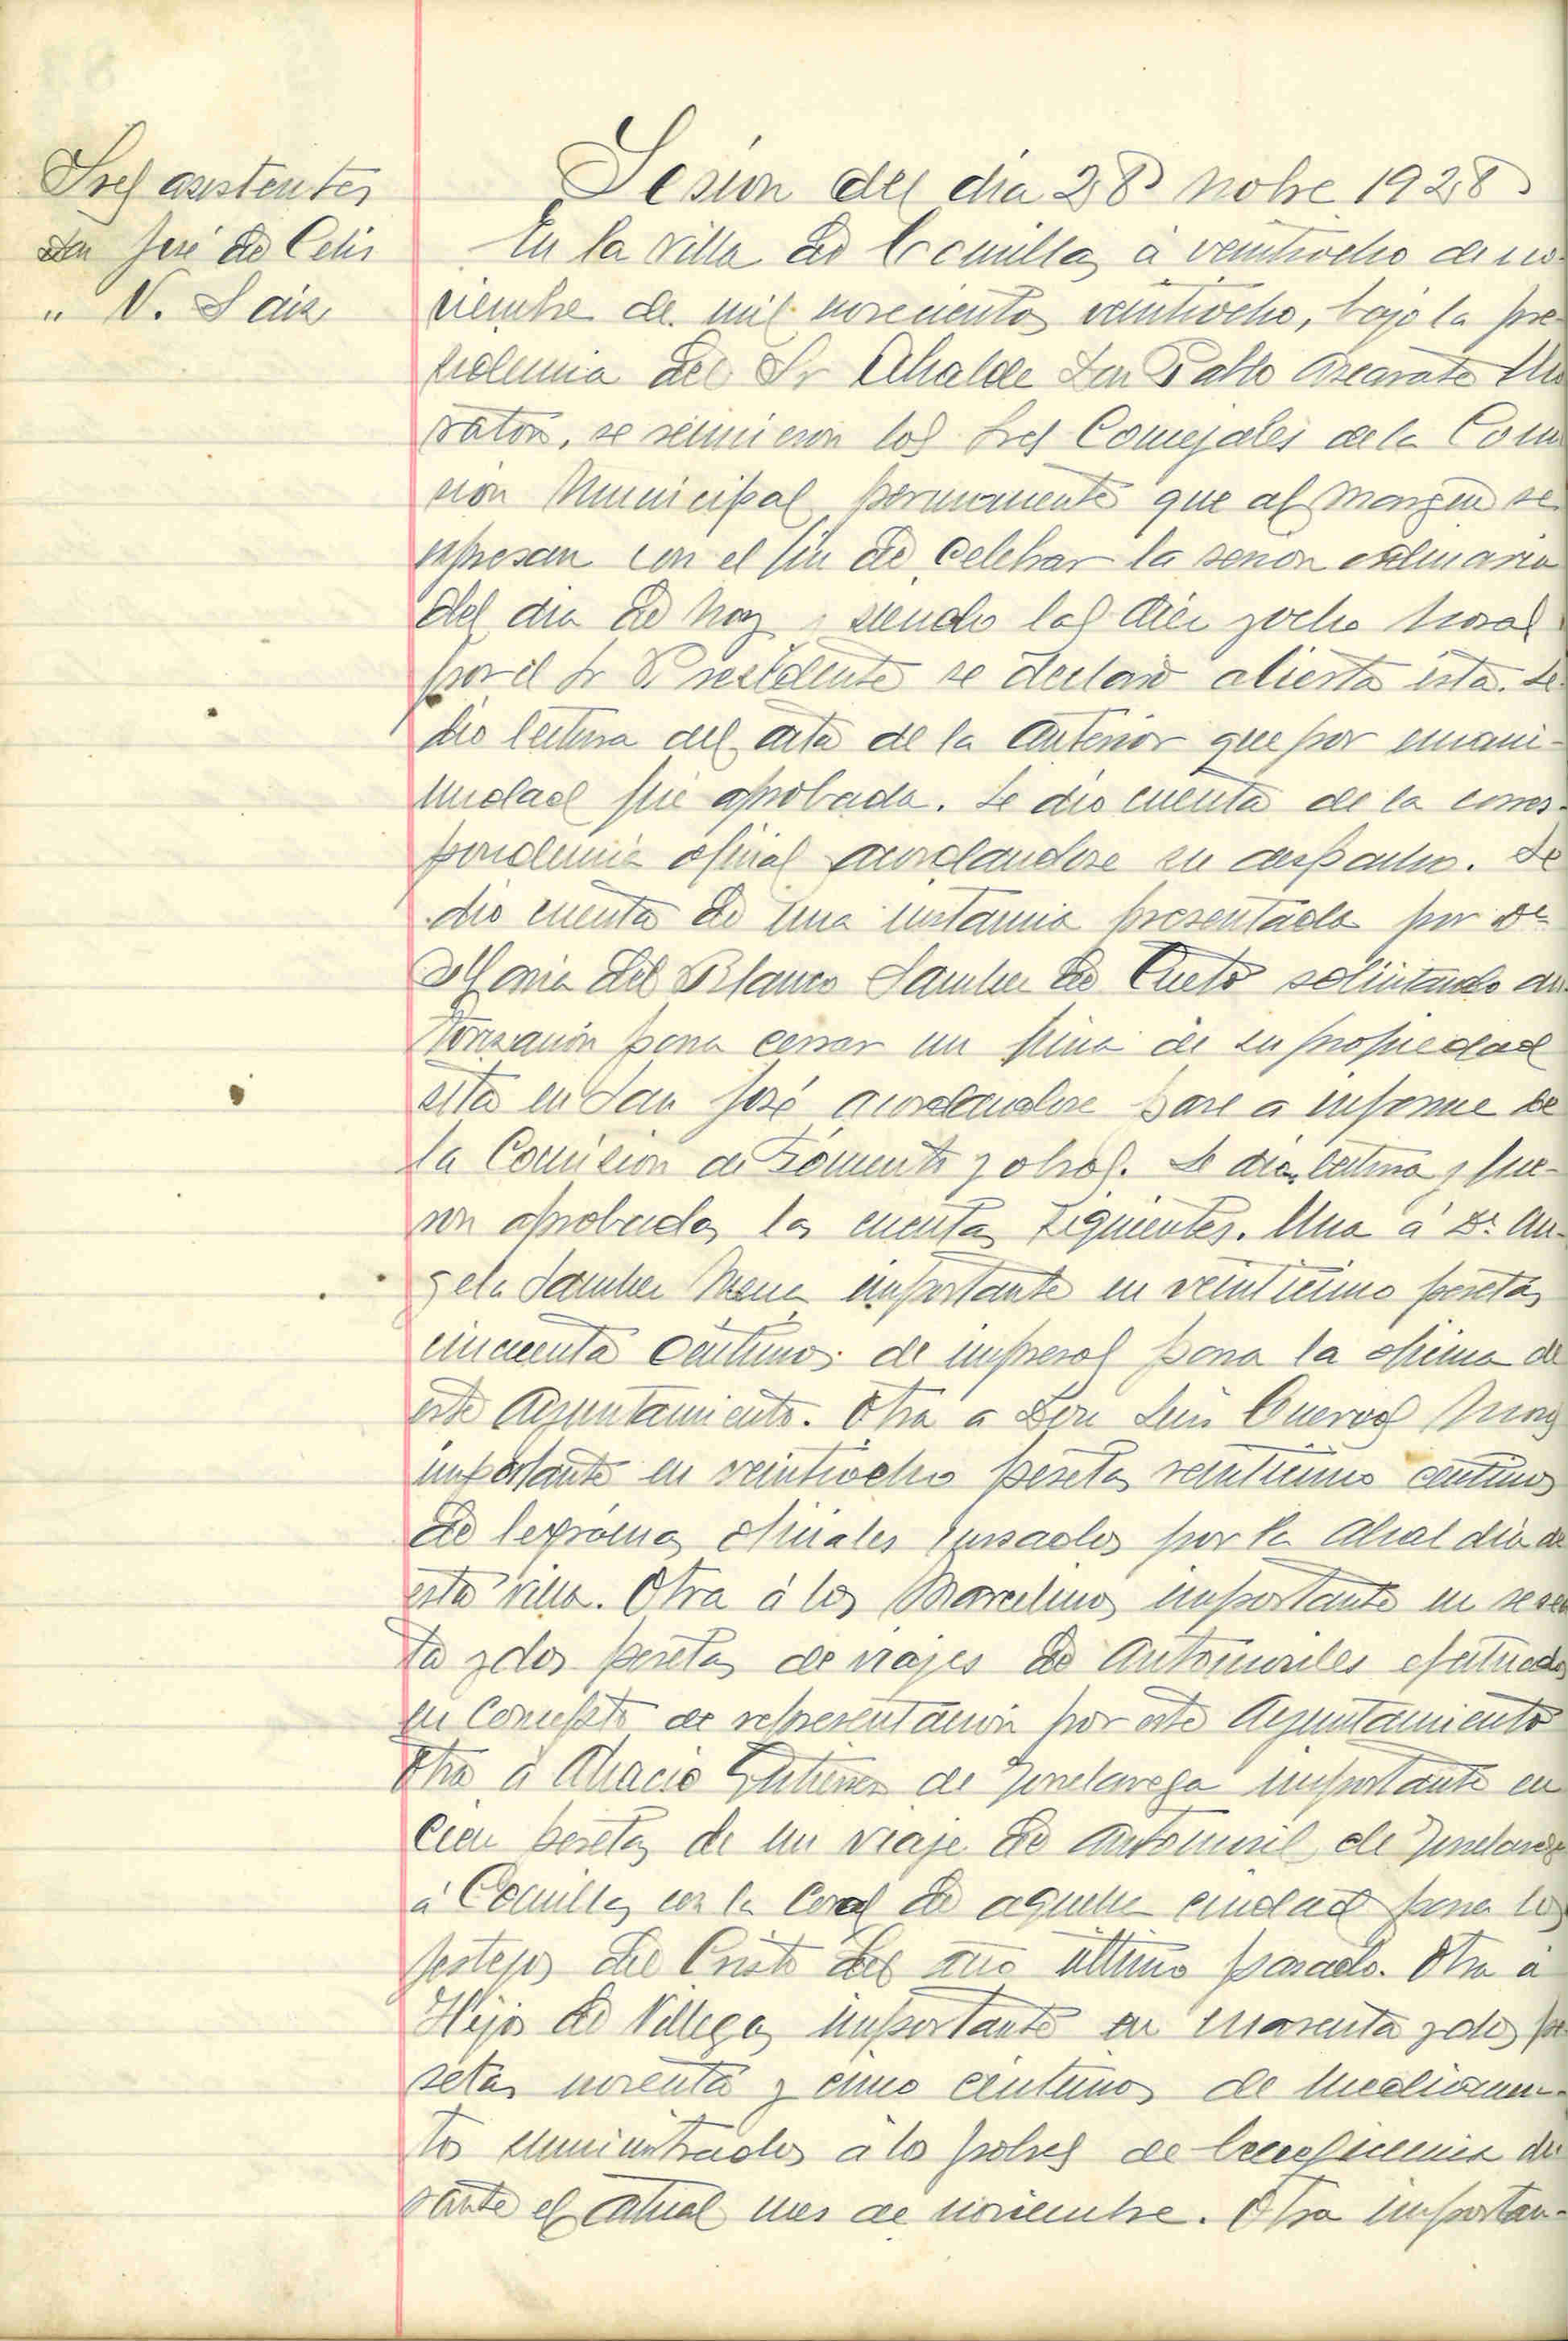 Sres asistentes
Don José de Celis
" V. Saiz
Sesión del dia 28 nobre 1928
En la villa de Comillas, á veintiocho de no-
viembre de mil novecientos veintiocho, bajo la pre-
sidencia del Sr Alcalde Don Pablo Azcarate
se reunieron los Sres Concejales de la Comi
sión Municipal permanente que al margen se
expresan con el fin de celebrar la sesión ordinaria
del dia de hoy, siendo las diez y ocho horas
por el Sr Presidente se declaró abierta esta. Se
dio lectura del acta de la anterior que por unani-
midad fué aprobada. Se dió cuenta de la corres-
pondencia oficial acordandose su despacho. Se
dio cuenta de una instancia presentada por Dª
Maria del Blanco Sanchez de Cueto solicitando au-
torización para cerrar un finca de su propiedad
sita en San José acordandose pase a informe de
la Comisión de Fomento y obras. Se dio lectura y fue-
ron aprobadas las cuentas siguientes. Una á Dª An-
gela Sanchez Mena importante en veinticinco pesetas
cincuenta centimos de impresos para la oficina de
este Ayuntamiento. Otra a Don Luis Cuevas
importante en veintiocho pesetas veinticinco centimos
de telegramas oficiales cursados por la Alcaldia de
esta villa. Otra á los Marcelinos importante en sesen
ta y dos pesetas de viajes de automoviles efectuados
en concepto de representación por este Ayuntamiento
Otra á Acacio Gutierrez de Torrelavega importante en
cien pesetas de un viaje de automovil de Torrelavega
á Comillas con la Coral de aquella ciudad para los
festejos del Cristo del año último pasado. Otra á
Hijos de Villegas importante en cuarenta y dos pe
setas noventa y cinco centimos de medicamen-
tos suministrados á los pobres de beneficencia du
rante el actual mes de noviembre. Otra importan-